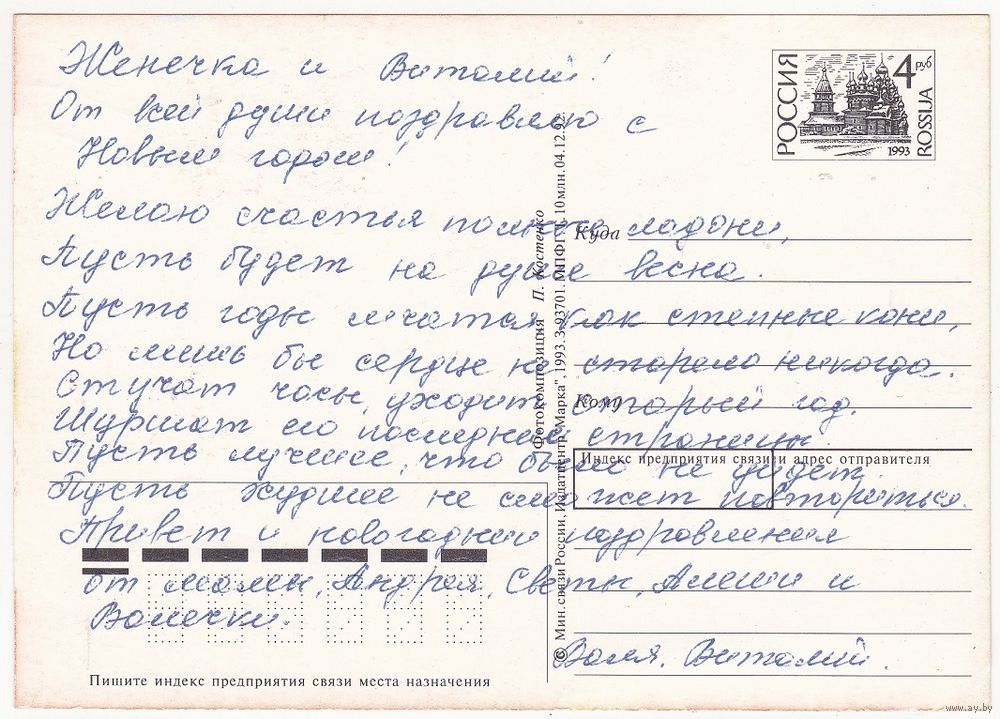 Женечка и Виталий!
От всей души поздравляю с
Новым годом!
Желаю счастья полные ладони,
Пусть будет на душе весна.
Пусть годы мчатся, как степные кони,
Но лишь бы сердце не старело никогда.
Стучат часы, уходит старый год.
Шуршат его последние страницы.
Пусть лучшее, что было не уйдет.
Пусть худшее не сможет повториться.
Привет и новогодние поздравления
от мамы, Андрея, Светы, Алёши и
Валечки.
Валя. Виталий.
РОССИЯ
4 руб
ROSSIJA
1993
Куда
Кому
Индекс предприятия связи и адрес отправителя
Фотокомпозиция П. Костенко
© Мин. связи России, Издатцентр "Марка", 1993. З-93701. ИППФГЗ. 10 млн. 04.12.92
Пишите индекс предприятия связи места назначения
www.ay.by